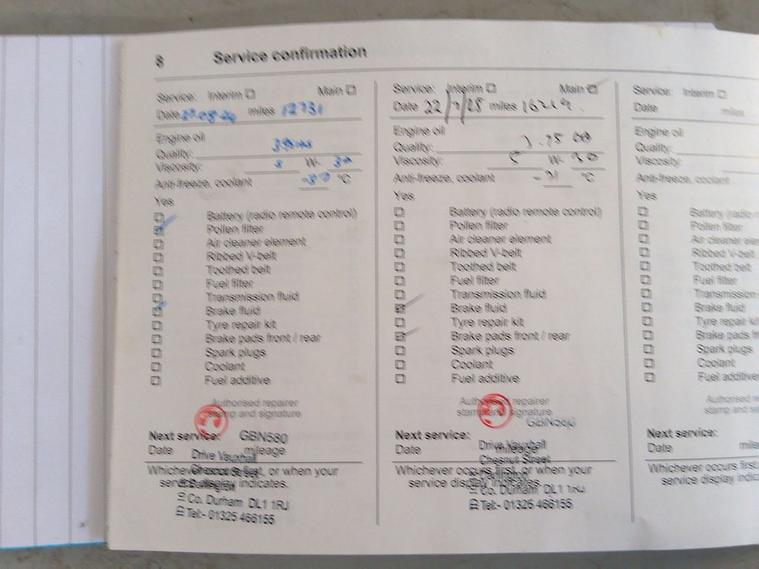 8 Service confirmation
Service: Interim Main
Date miles 12731
Engine oil
Quality:
Viscosity: W- 30
Anti-freeze, coolant -37 °C
Yes
Battery (radio remote control)
Pollen filter
Air cleaner element
Ribbed V-belt
Toothed belt
Fuel filter
Transmission fluid
Brake fluid
Tyre repair kit
Brake pads front / rear
Spark plugs
Coolant
Fuel additive
Authorised repairer
stamp and signature
Next service: GBN580
Date mileage
Drive Vauxhall
Whichever occurs first, or when your
Chesnut Street
service display indicates.
Co. Durham DL1 1RJ
Tel:- 01325 466155
Service: Interim Main
Date 22/ miles
Engine oil
Quality:
Viscosity: W- 30
Anti-freeze, coolant °C
Yes
Battery (radio remote control)
Pollen filter
Air cleaner element
Ribbed V-belt
Toothed belt
Fuel filter
Transmission fluid
Brake fluid
Tyre repair kit
Brake pads front / rear
Spark plugs
Coolant
Fuel additive
Authorised repairer
stamp and signature
GBN580
Next service:
Drive Vauxhall
Date mileage
Chesnut Street
Whichever occurs first, or when your
service display indicates.
Co. Durham DL1 1RJ
Tel:- 01325 466155
Service: Interim
Date miles
Engine oil
Quality:
Viscosity:
Anti-freeze, coolant
Yes
Battery (radio
Pollen filter
Air cleaner
Ribbed V-belt
Toothed belt
Fuel filter
Transmission
Brake fluid
Tyre repair kit
Brake pads
Spark plugs
Coolant
Fuel additive
Authorised
stamp and
Next service:
Date
Whichever occurs first
service display